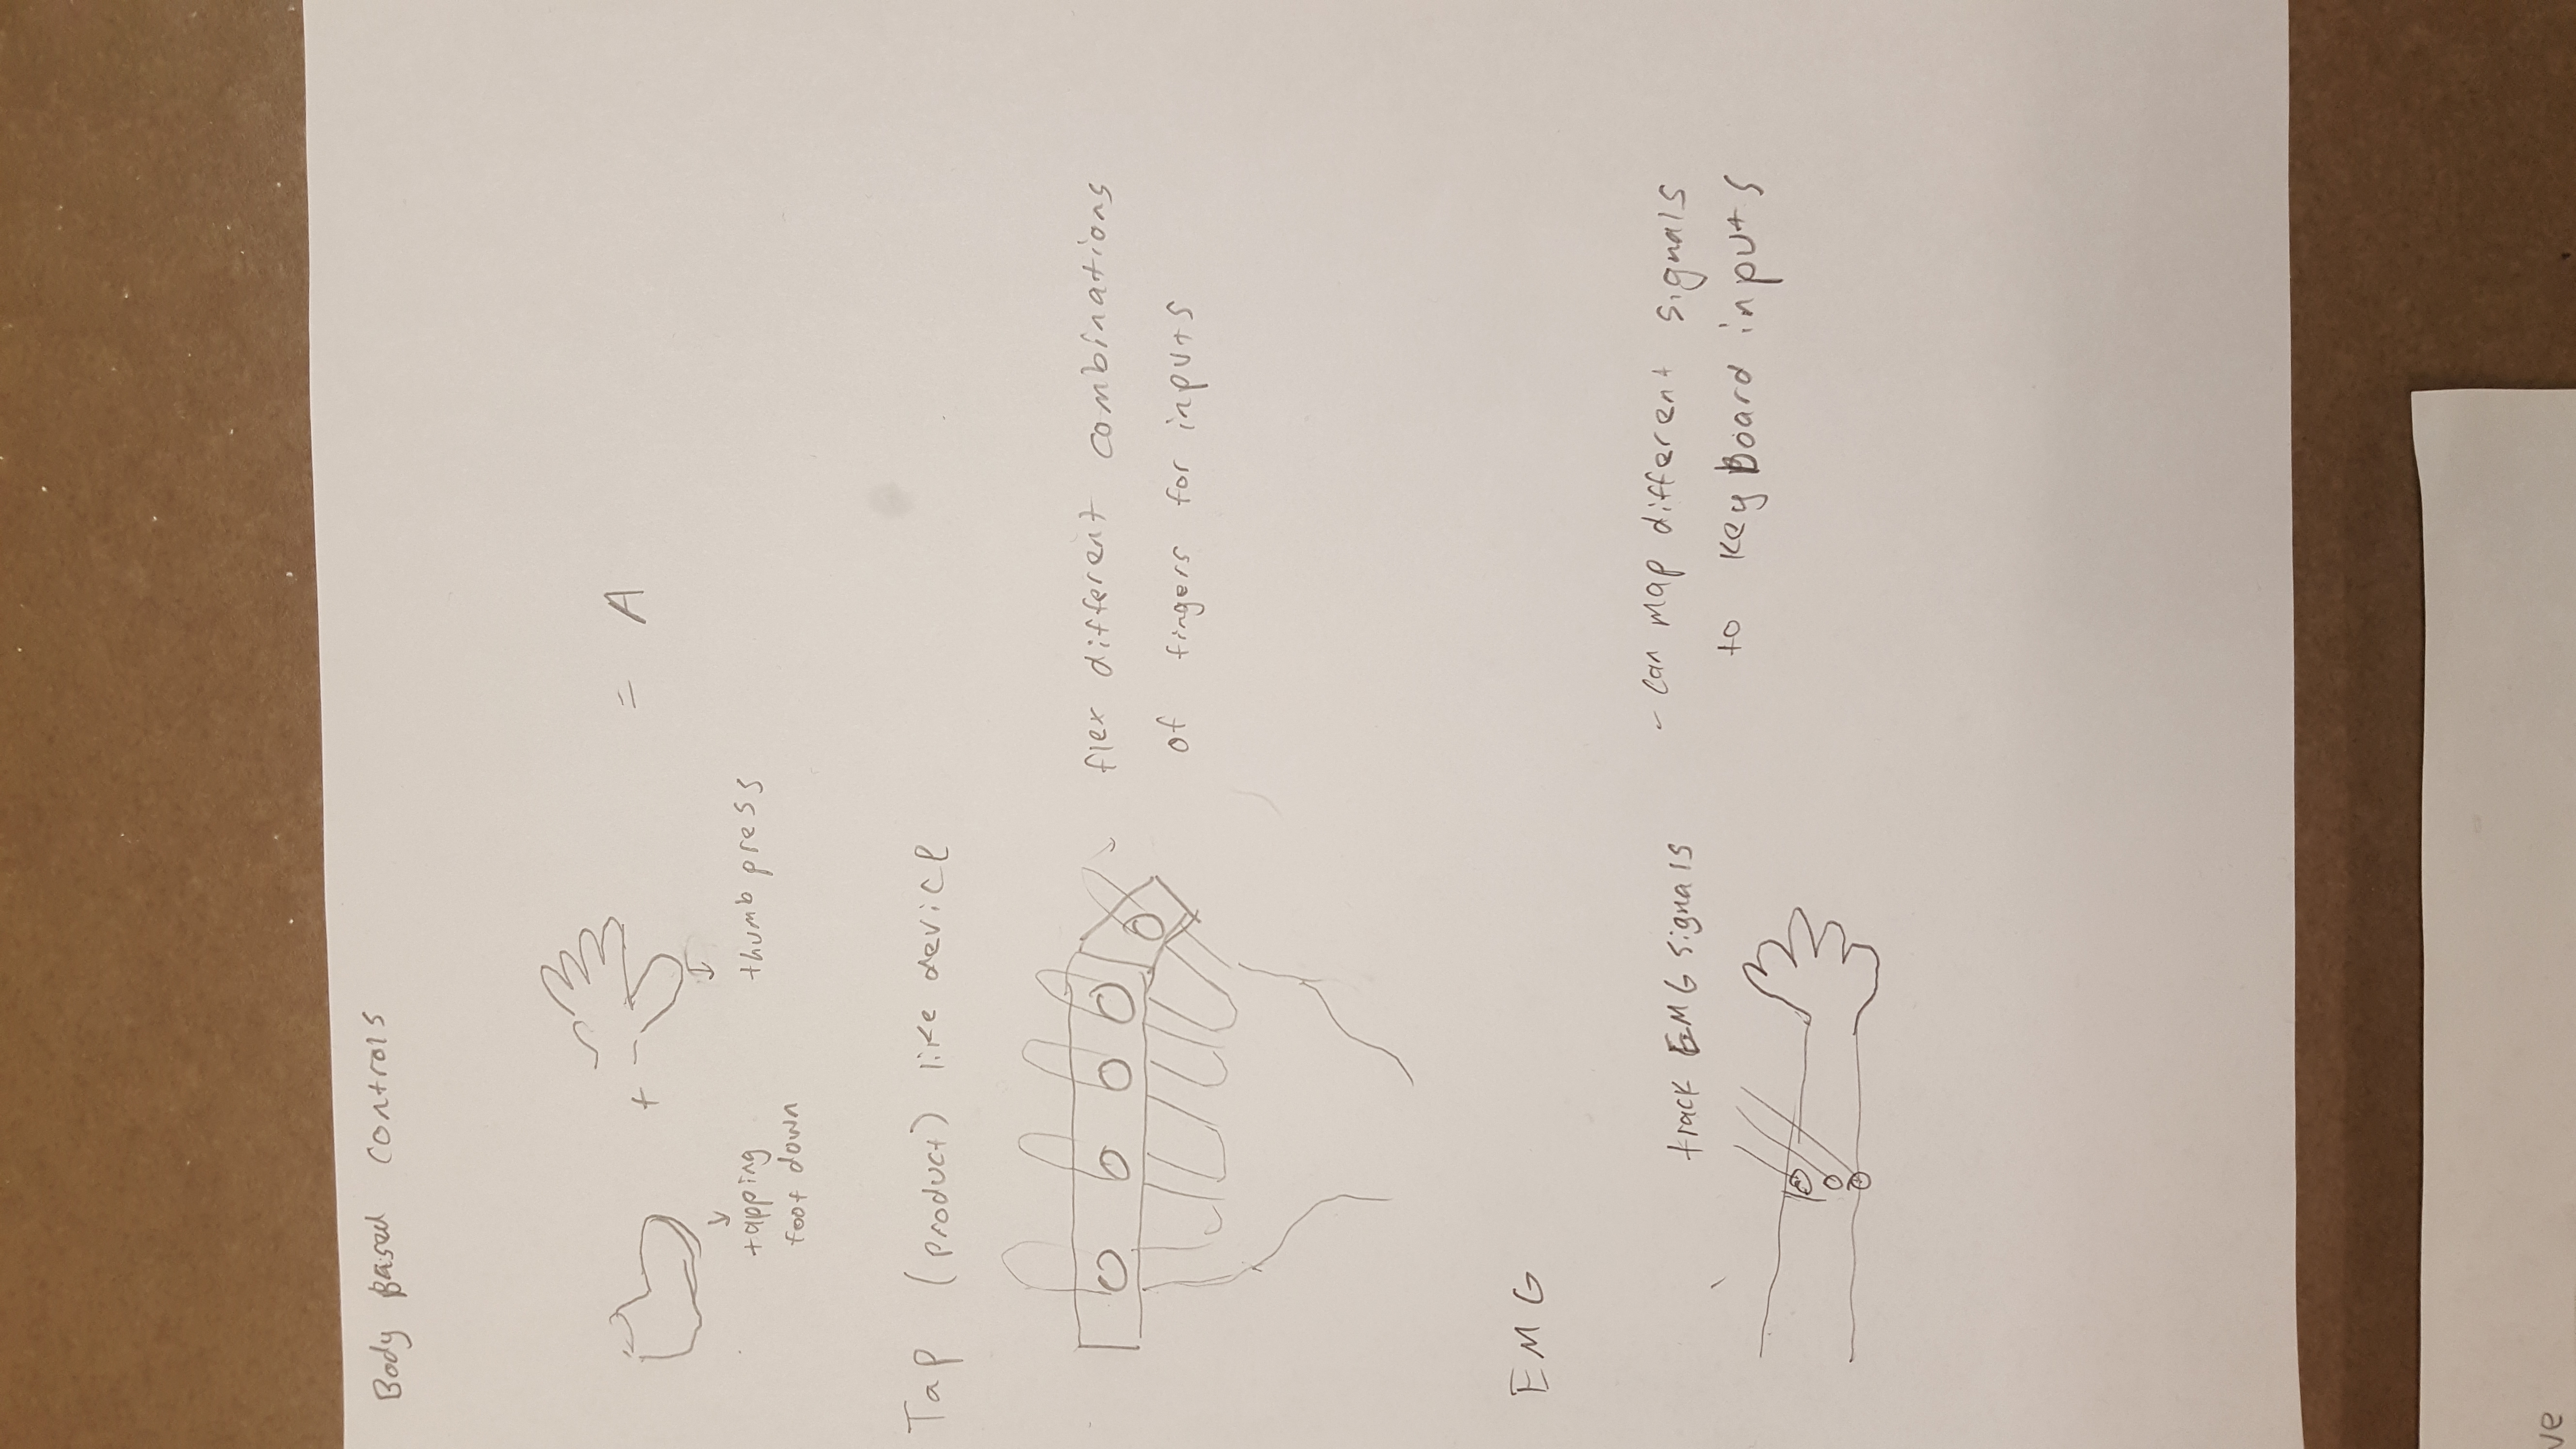 Body Based Controls
+ = A
tapping
foot down
thumb press
Tap (product) like device
flex different combinations
of fingers for inputs
EMG
track EMG signals
- can map different signals
to keyBoard inputs
ve